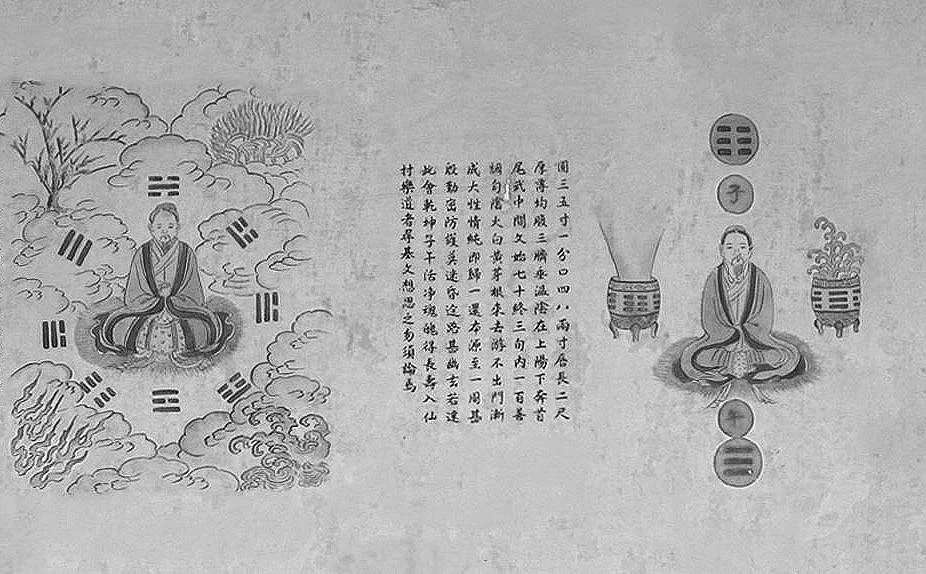 圓三五寸一分口四八兩寸唇長二尺
厚薄均腹三臍垂溫陰在上陽下奔首
尾武中間文始七十終三旬內一百善
調勻陰火白黃芽根來去游不出門漸
成大性情純却歸一還本源至一周甚
殷勤密防護莫迷昏途路甚幽玄若達
此會乾坤子午活淨魂魄得長壽入仙
村樂道者尋基文想思之勿須論焉
子
午